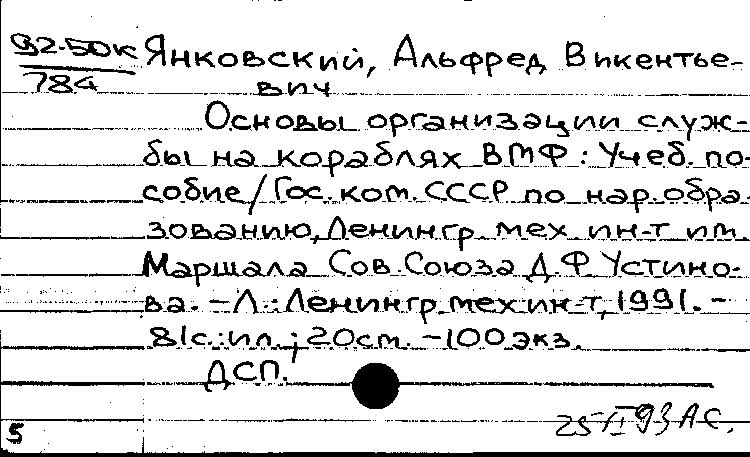 92-50к Янковский, Альфред Викентье-
784 вич
Основы организации служ-
бы на кораблях ВМФ: Учеб. по-
собие/Гос. ком. СССР по нар. обра-
зованию, Ленингр. мех. ин-т им.
Маршала Сов. Союза Д.Ф. Устино-
ва. - Л.: Ленингр. мех. ин-т, 1991. -
81с.: ил.; 20см. - 100 экз.
ДСП.
25/II 93 АС.
5